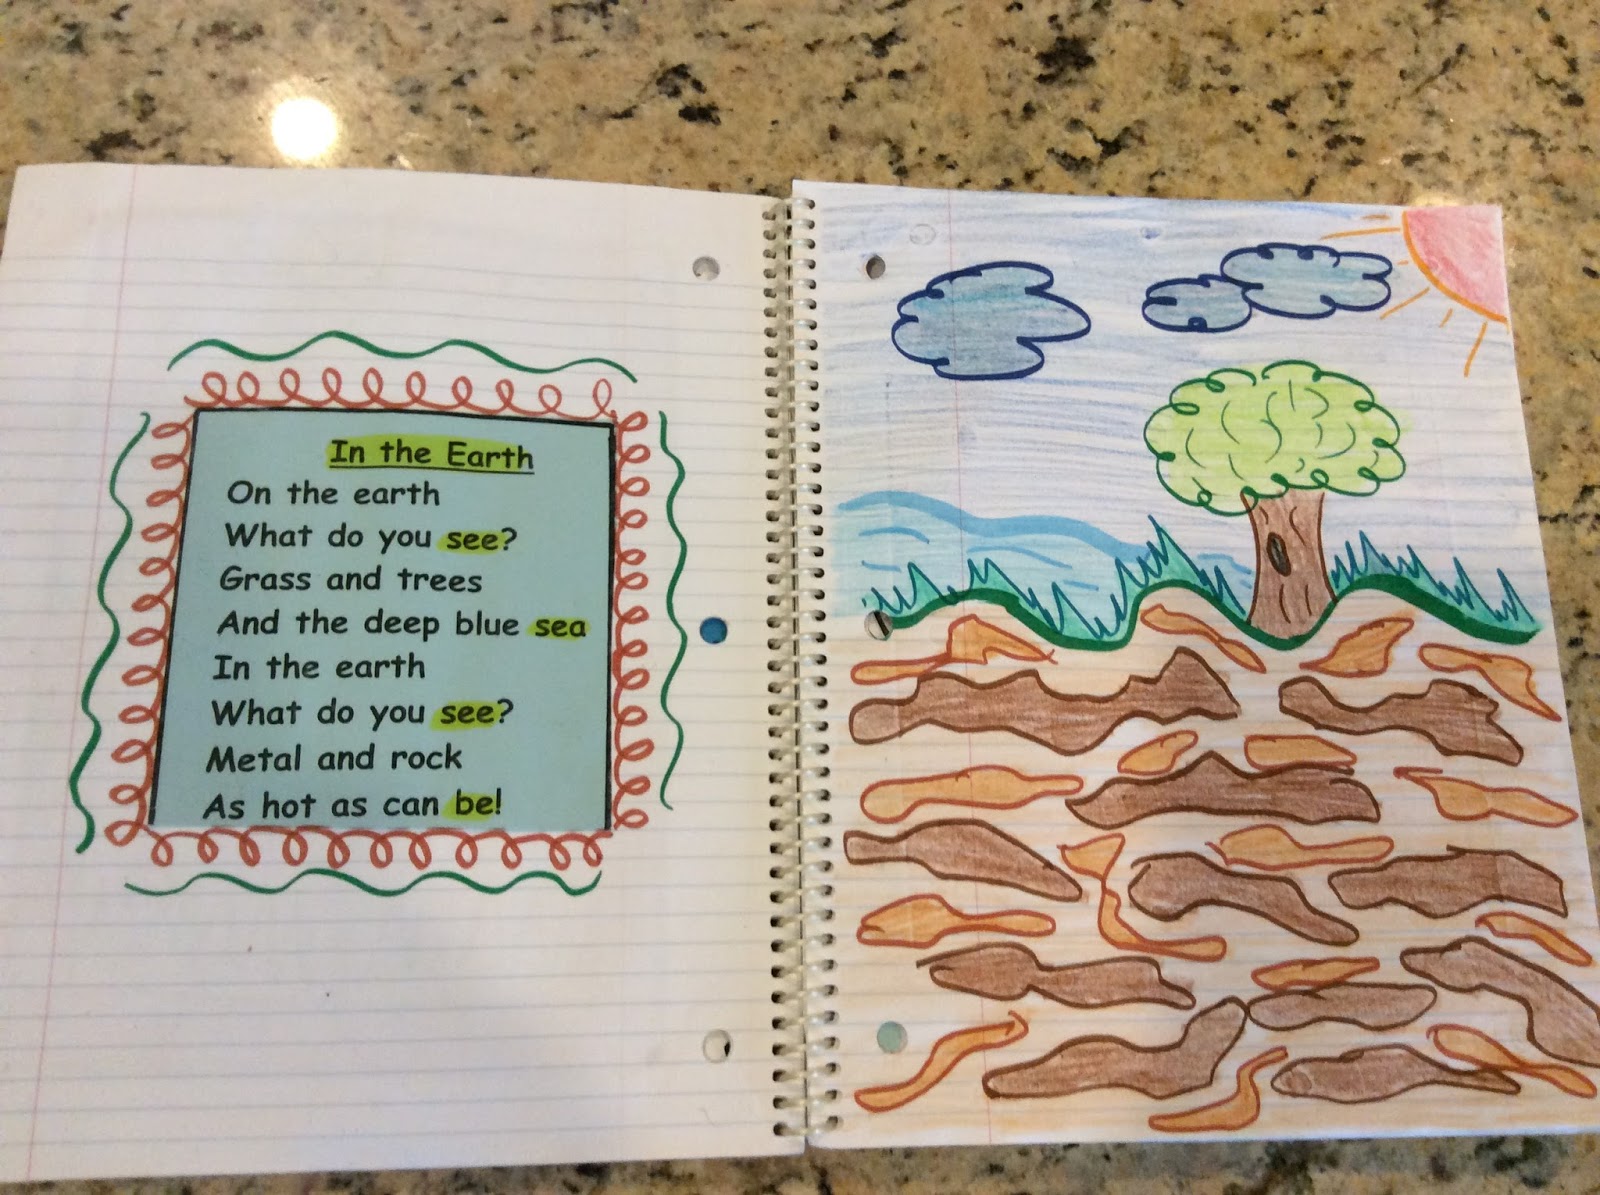 In the Earth
On the earth
What do you see?
Grass and trees
And the deep blue sea
In the earth
What do you see?
Metal and rock
As hot as can be!